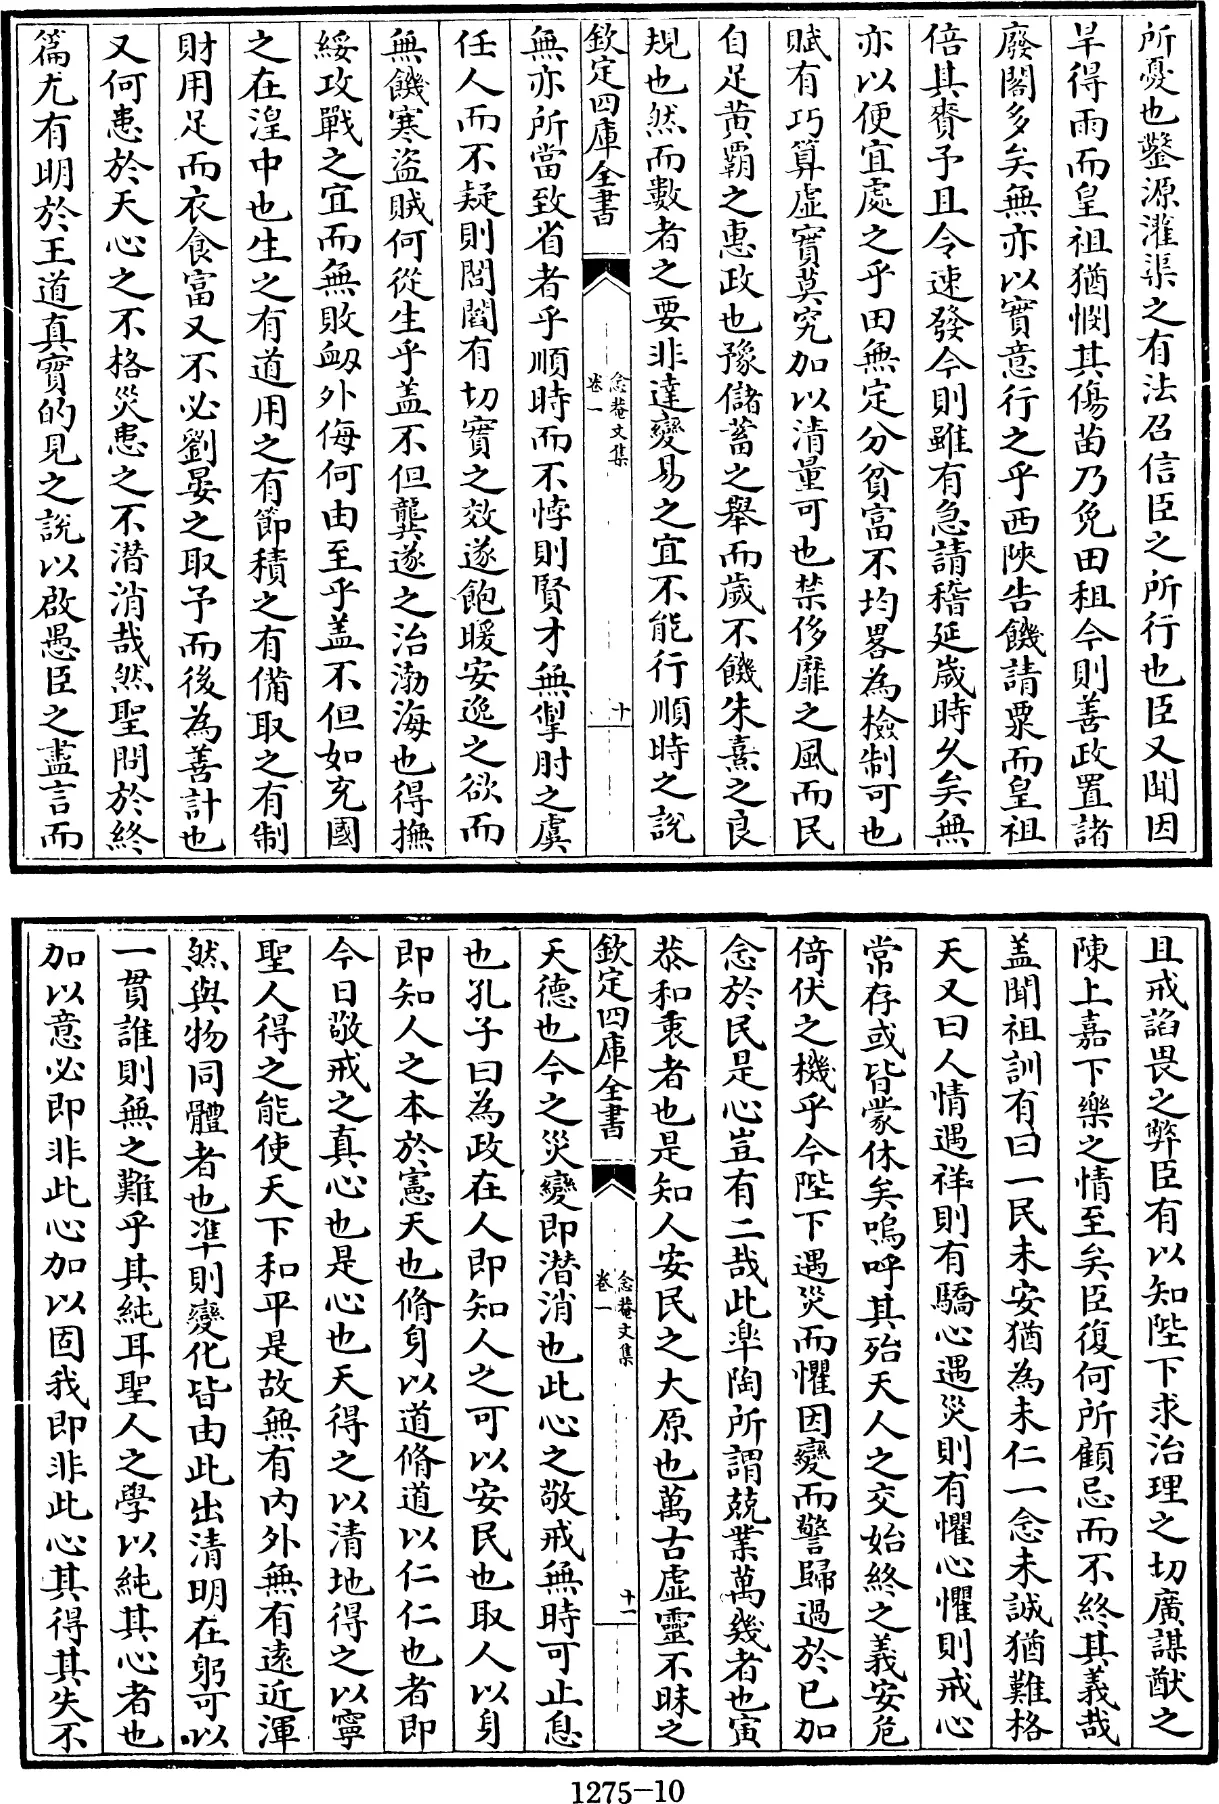 所憂也鑿源灌渠之有法召信臣之所行也臣又聞因
旱得雨而皇祖猶憫其傷苗乃免田租今則善政置諸
廢閣多矣無亦以實意行之乎西陜告饑請粟而皇祖
倍其賚予且令速發今則雖有急請稽延歲時久矣無
亦以便宜處之乎田無定分貧富不均畧為檢制可也
賦有巧算虛實莫究加以清量可也禁侈靡之風而民
自足黃霸之惠政也豫儲蓄之舉而歲不饑朱熹之良
規也然而數者之要非達變易之宜不能行順時之說
欽定四庫全書
念菴文集
卷一
十
無亦所當致省者乎順時而不悖則賢才無掣肘之虞
任人而不疑則閭閻有切實之效遂飽暖安逸之欲而
無饑寒盜賊何從生乎盖不但龔遂之治渤海也得撫
綏攻戰之宜而無敗衂外侮何由至乎盖不但如充國
之在湟中也生之有道用之有節積之有備取之有制
財用足而衣食富又不必劉晏之取予而後為善計也
又何患於天心之不格災患之不潛消哉然聖問於終
篇尤有明於王道真實的見之說以啟愚臣之盡言而
且戒諂畏之弊臣有以知陛下求治理之切廣謀猷之
陳上嘉下樂之情至矣臣復何所顧忌而不終其義哉
盖聞祖訓有曰一民未安猶為未仁一念未誠猶難格
天又曰人情遇祥則有驕心遇災則有懼心懼則戒心
常存或皆蒙休矣嗚呼其殆天人之交始終之義安危
倚伏之機乎今陛下遇災而懼因變而警歸過於已加
念於民是心豈有二哉此臯陶所謂兢業萬幾者也寅
恭和衷者也是知人安民之大原也萬古虛靈不昧之
欽定四庫全書
念菴文集
卷一
十一
天德也今之災變即潛消也此心之敬戒無時可止息
也孔子曰為政在人即知人之可以安民也取人以身
即知人之本於憲天也脩身以道脩道以仁仁也者即
今日敬戒之真心也是心也天得之以清地得之以寧
聖人得之能使天下和平是故無有內外無有遠近渾
然與物同體者也準則變化皆由此出清明在躬可以
一貫誰則無之難乎其純耳聖人之學以純其心者也
加以意必即非此心加以固我即非此心其得其失不
1275-10